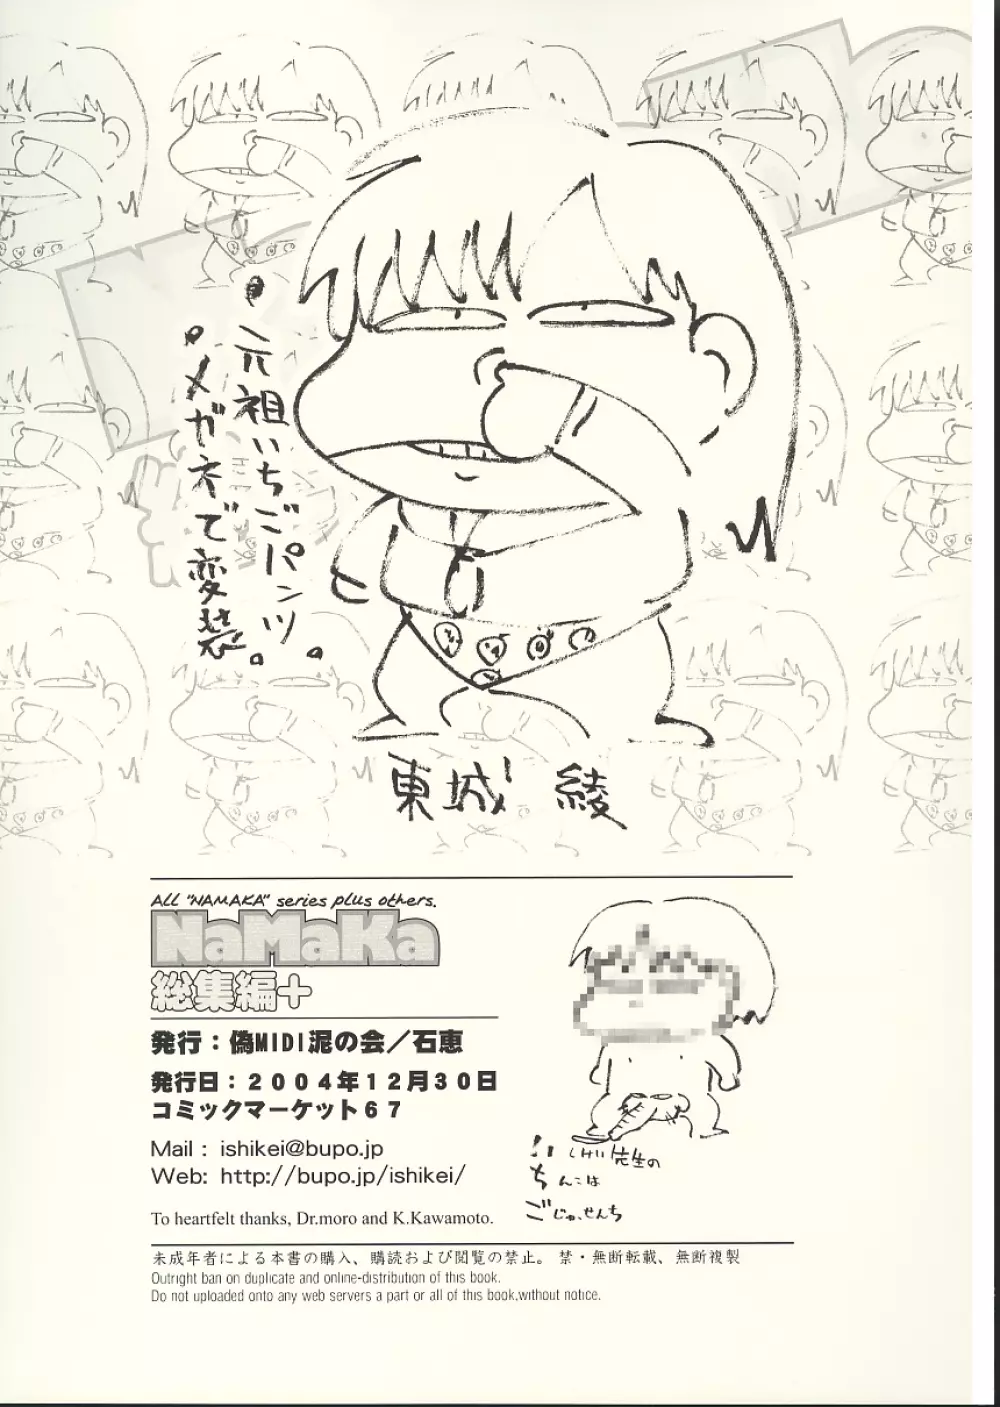 ・元祖いちごパンツ。
・メガネで変装。
東城 綾
ALL "NAMAKA" series plus others.
NaMaKa
総集編+
発行：偽MIDI泥の会／石恵
発行日：２００４年１２月３０日
コミックマーケット６７
Mail : ishikei@bupo.jp
Web: http://bupo.jp/ishikei/
To heartfelt thanks, Dr.moro and K.Kawamoto.
いしけい先生の
ちんこは
ごじゅっせんち
未成年者による本書の購入、購読および閲覧の禁止。 禁・無断転載、無断複製
Outright ban on duplicate and online-distribution of this book.
Do not uploaded onto any web servers a part or all of this book,without notice.